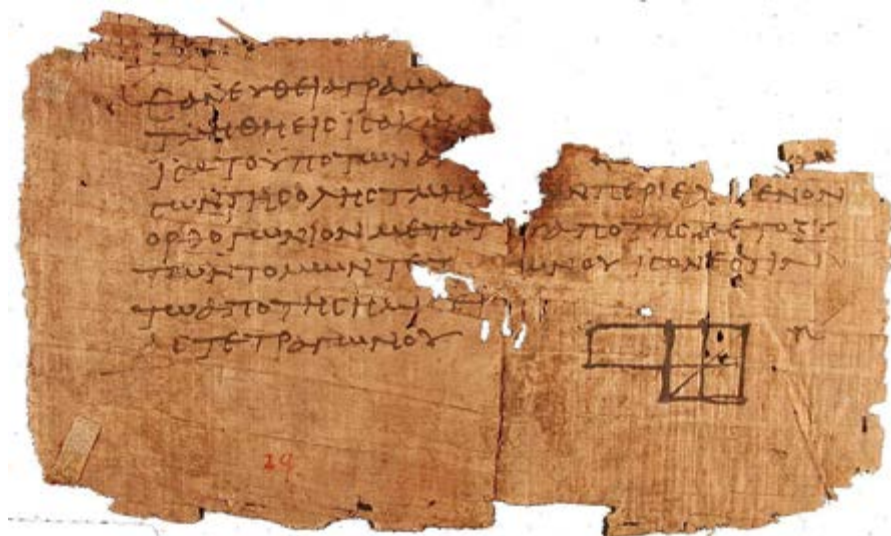 ΕΑΝΕΥΘΕΙΑΓΡΑΜΜ
ΤΜΗΘΗΕΙCΙCΑΚΑΙΑ
ΙCΑΤΟΥΠΟΤΩΝΑ
CΩΝΤΗCΟΛΗCΤΜΗΜ ΝΠΕΡΙΕΧ ΕΝΟΝ
ΟΡΘΟΓΩΝΙΟΝΜΕΤΟΤ ΑΠΟΤΗCΜΕΤΟΞΥ
ΤΩΝΤΟΜΩΝΤΕΤ ΩΝΟΥΙCΟΝΕCΤΙΝ
ΤΩΑΠΟΤΗCΗΜΙ
ΑCΤΕΤΡΑΓΩΝΟΥ
29